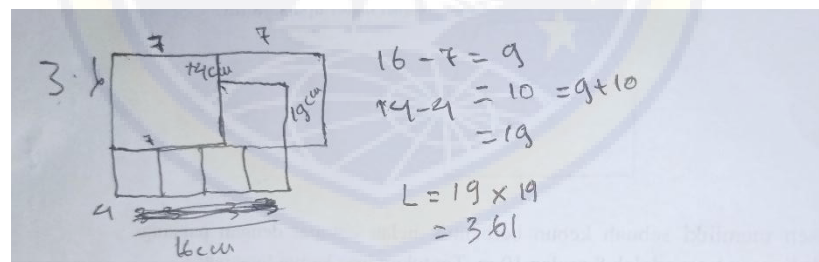 7 7
3.
14cm
19cm
7
4
16cm
16 - 7 = 9
14 - 4 = 10 = 9 + 10
= 19
L = 19 x 19
= 361